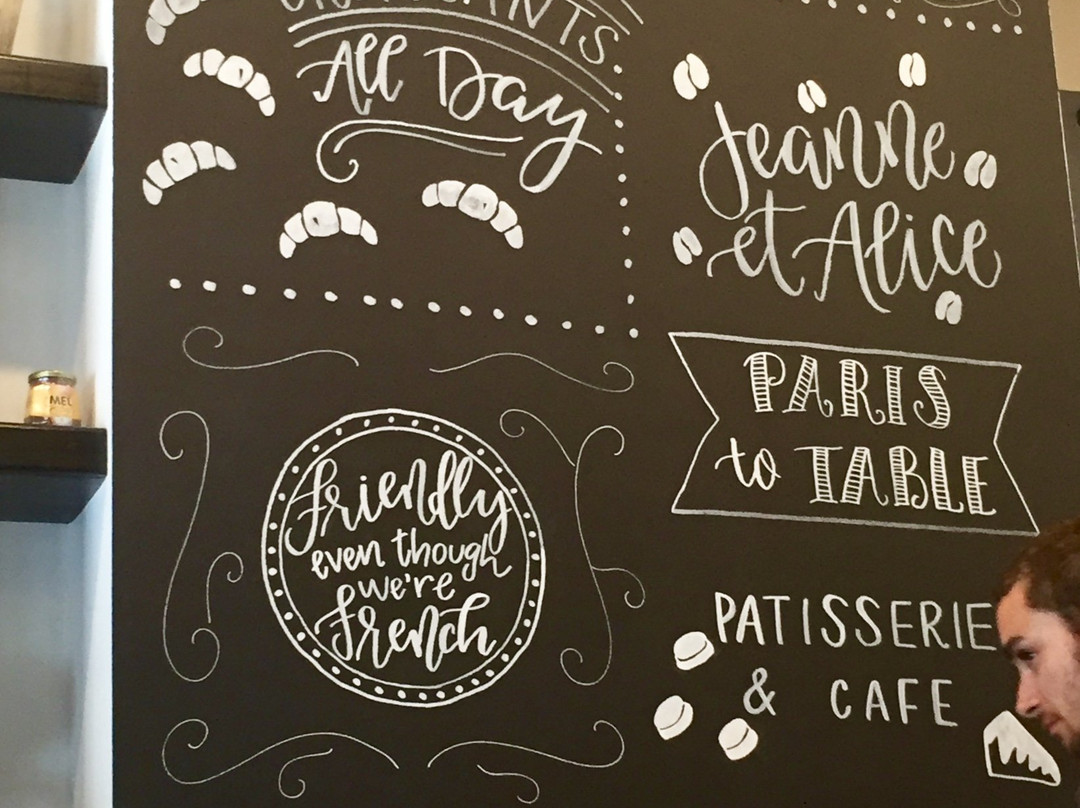 All Day
Jeanne
et Alice
PARIS
to TABLE
friendly
even though
we're
french
PATISSERIE
& CAFE